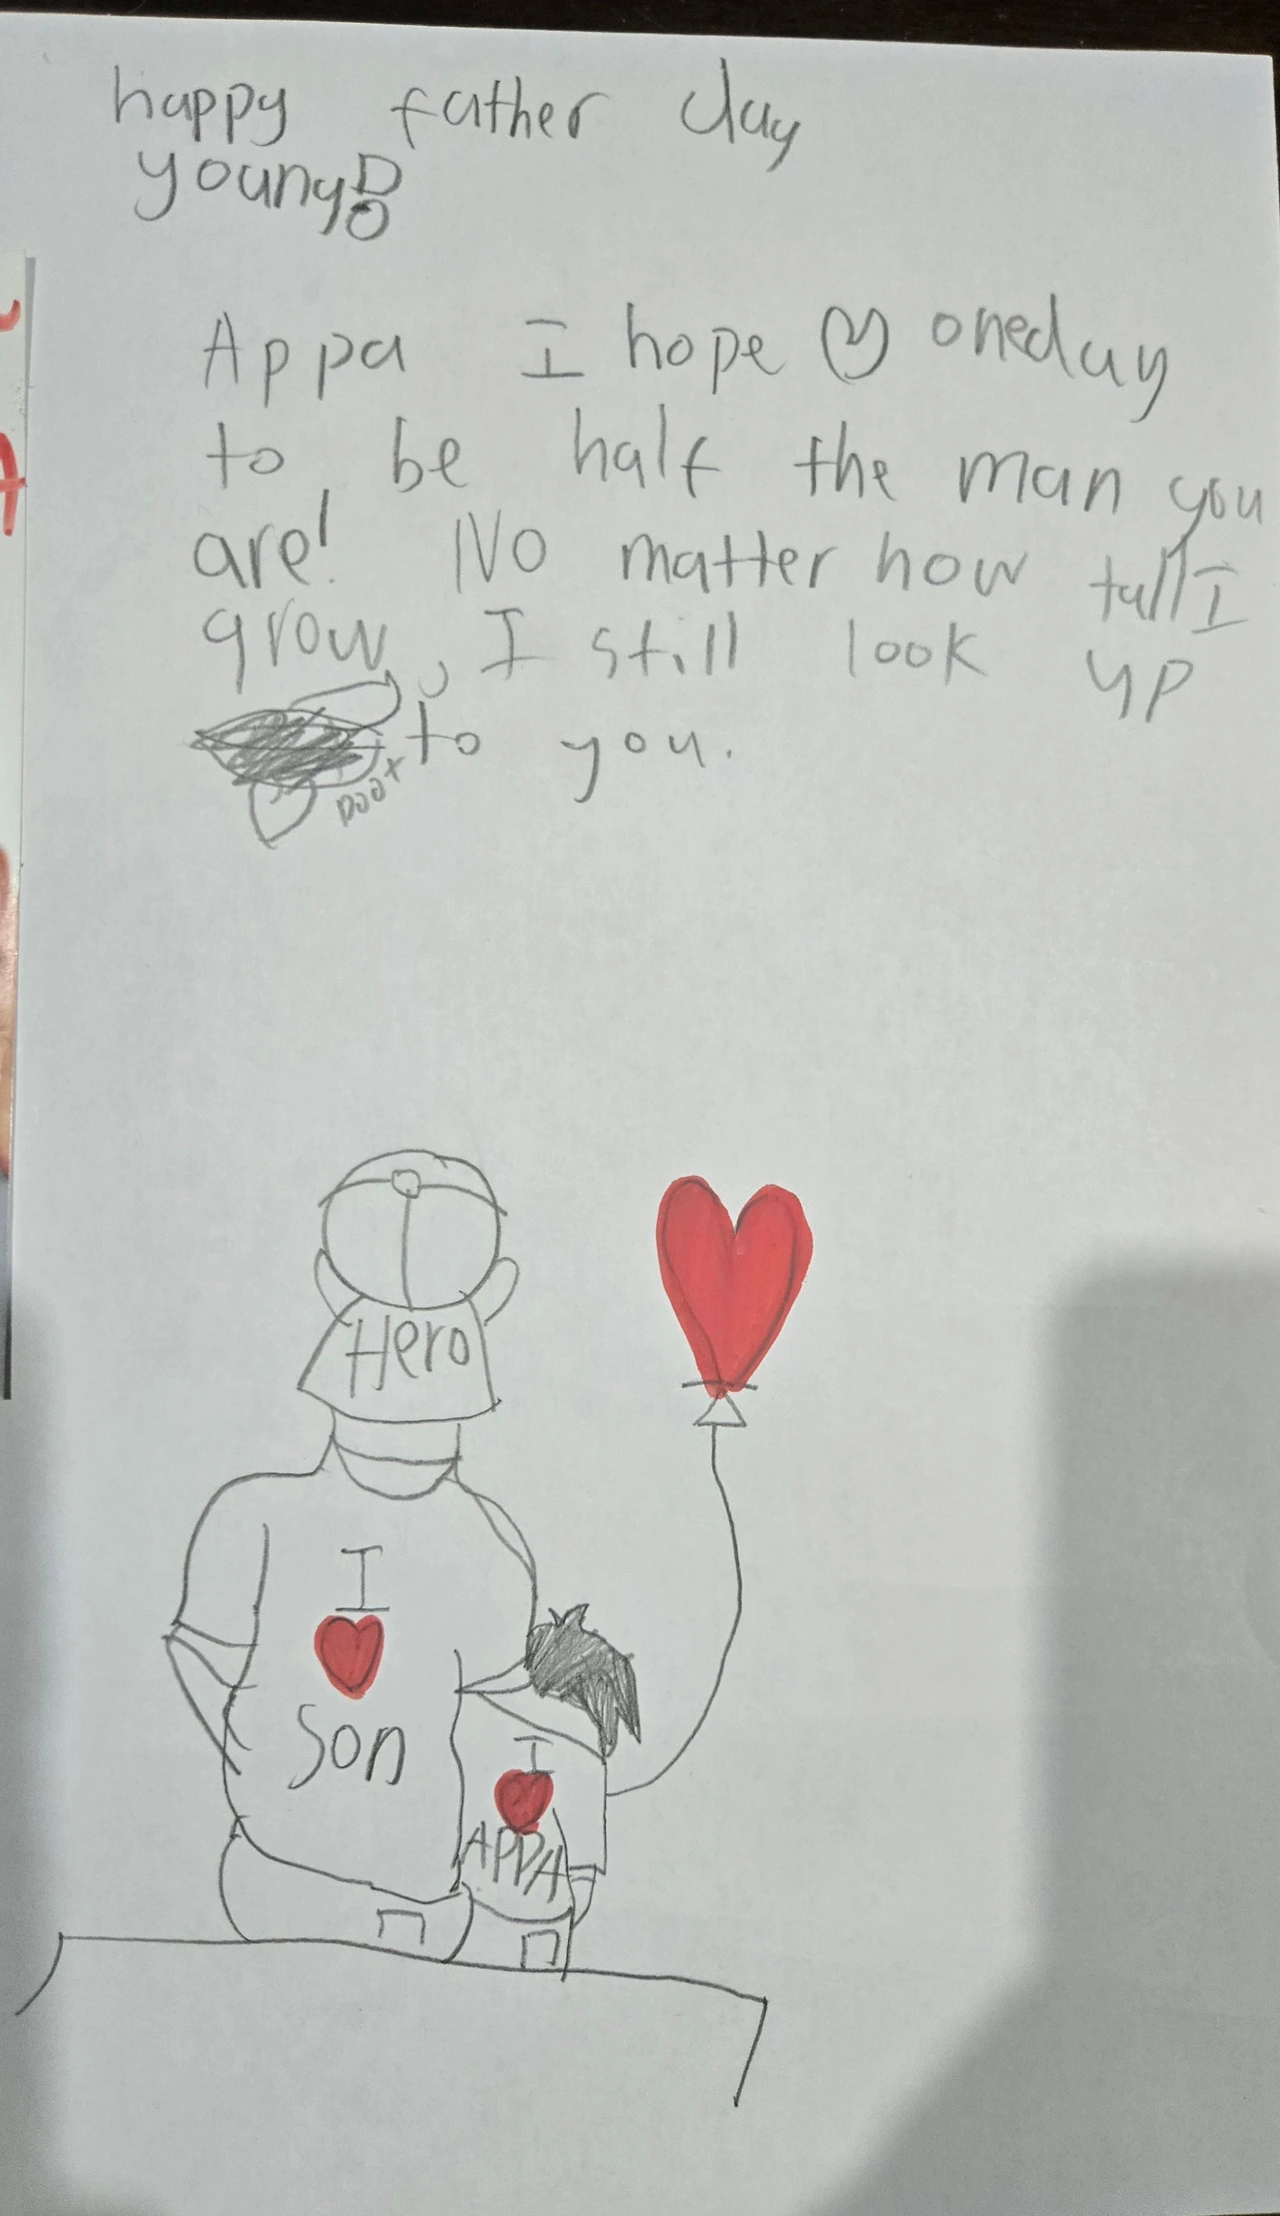 happy father day
young
Appa I hope oneday
to be half the man you
are! No matter how tall I
grow, I still look up
to you.
Doot
Hero
I
Son
I
APPA